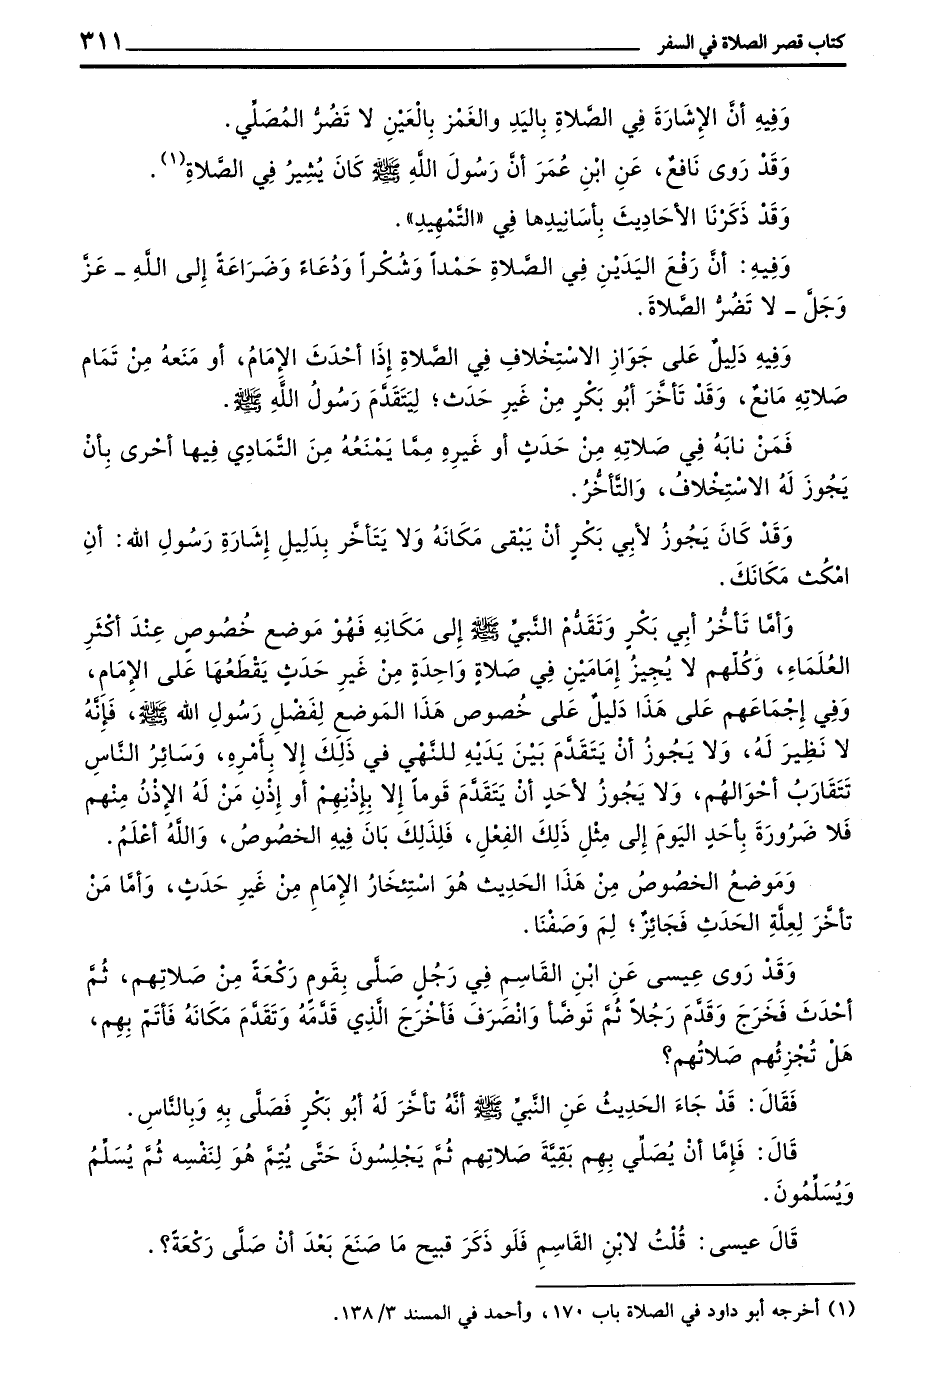 كتاب قصر الصلاة في السفر ٣١١
وَفِيهِ أنَّ الإِشَارَةَ فِي الصَّلاةِ بِاليَدِ والغَمْزِ بِالْعَيْنِ لا تَضُرُّ المُصَلِّي.
وَقَدْ رَوى نَافعٌ، عَنِ ابْنِ عُمَرَ أنَّ رَسُولَ اللَّهِ ﷺ كَانَ يُشِيرُ فِي الصَّلاةِ(١).
وَقَدْ ذَكَرْنَا الأحَادِيثَ بِأسَانِيدِها فِي «التَّمْهِيدِ».
وَفِيهِ: أنَّ رَفْعَ اليَدَيْنِ فِي الصَّلاةِ حَمْداً وَشُكْراً وَدُعَاءً وَضَرَاعَةً إِلى اللَّهِ ـ عَزَّ
وَجَلَّ ـ لا تَضُرُّ الصَّلاةَ.
وَفِيهِ دَلِيلٌ عَلى جَوَازِ الاسْتِخْلافِ فِي الصَّلاةِ إِذَا أحْدَثَ الإِمَامُ، أو مَنَعهُ مِنْ تَمَام
صَلاتِهِ مَانعٌ، وَقَدْ تَأخَّرَ أبُو بَكْرٍ مِنْ غَيرِ حَدَث؛ لِيَتَقَدَّمَ رَسُولُ اللَّهِ ﷺ.
فَمَنْ نابَهُ فِي صَلاتِهِ مِنْ حَدَثٍ أو غَيرِهِ مِمَّا يَمْنَعُهُ مِنَ التَّمَادِي فِيها أحْرى بِأنْ
يَجُوزَ لَهُ الاسْتِخْلافُ، وَالتَّأخُّرُ.
وَقَدْ كَانَ يَجُوزُ لأبِي بَكْرٍ أنْ يَبْقى مَكَانَهُ وَلا يَتَأخَّر بِدَلِيلِ إِشَارَةِ رَسُولِ الله: أنِ
امْكُث مَكَانَكَ.
وَأمَّا تَأخُّرُ أبِي بَكْرٍ وَتَقَدُّمُ النَّبِيِّ ﷺ إِلى مَكَانِهِ فَهُوَ مَوضع خُصُوصٍ عِنْدَ أكْثَرِ
العُلَمَاءِ، وَكُلّهم لا يُجِيزُ إِمَامَيْنِ فِي صَلاةٍ وَاحِدَةٍ مِنْ غَيرِ حَدَثٍ يَقْطَعُهَا عَلى الإِمَامِ،
وَفِي إِجْمَاعَهِم عَلى هَذَا دَلِيلٌ عَلى خُصوص هَذَا المَوضع لِفَضْلِ رَسُولِ الله ﷺ، فَإِنَّهُ
لا نَظِيرَ لَهُ، وَلا يَجُوزُ أنْ يَتَقَدَّمَ بَيْنَ يَدَيْهِ للنَّهْي في ذَلِكَ إِلا بِأمْرِهِ، وَسَائِرُ النَّاسِ
تَتَقَارَبُ أحْوَالهُم، وَلا يَجُوزُ لأحَدٍ أنْ يَتَقَدَّمَ قَوماً إِلا بِإذْنِهِمْ أو إِذْنِ مَنْ لَهُ الإِذْنُ مِنْهم
فَلا ضَرُورَةَ بِأحَدٍ اليَومَ إِلى مِثْلِ ذَلِكَ الفِعْلِ، فَلِذَلِكَ بَانَ فِيهِ الخصُوصُ، وَاللَّهُ أعْلَمُ.
وَمَوضعُ الخصُوصُ مِنْ هَذَا الحَدِيث هُوَ اسْتِئخَارُ الإِمَامِ مِنْ غَيرِ حَدَثٍ، وَأمَّا مَنْ
تأخَّرَ لِعِلَّةِ الحَدَثِ فَجَائِزٌ؛ لِمَ وَصَفْنَا.
وَقَدْ رَوى عِيسى عَنِ ابْنِ القَاسِمِ فِي رَجُلٍ صَلَّى بِقَومٍ رَكْعَةً مِنْ صَلاتِهِم، ثُمَّ
أحْدَثَ فَخَرَجَ وَقَدَّمَ رَجُلاً ثُمَّ تَوضَّأ وَانْصَرَفَ فَأخْرَجَ الَّذِي قَدَّمَهُ وَتَقَدَّمَ مَكَانَهُ فَأتَمّ بِهِم،
هَلْ تُجْزِئُهم صَلاتُهم؟
فَقَالَ: قَدْ جَاءَ الحَدِيثُ عَنِ النَّبِيِّ ﷺ أنَّهُ تأخَّرَ لَهُ أبُو بَكْرٍ فَصَلَّى بِهِ وَبِالنَّاسِ.
قَالَ: فَإِمَّا أنْ يُصَلِّي بِهِم بَقِيَّةَ صَلاتِهم ثُمَّ يَجْلِسُونَ حَتَّى يُتِمَّ هُوَ لِنَفْسِه ثُمَّ يُسَلِّمُ
وَيُسَلِّمُونَ.
قَالَ عيسى: قُلْتُ لابْنِ القَاسِمِ فَلَو ذَكَرَ قبيح مَا صَنَعَ بَعْدَ أنْ صَلَّى رَكْعَةً؟.
(١) أخرجه أبو داود في الصلاة باب ١٧٠، وأحمد في المسند ١٣٨/٣.